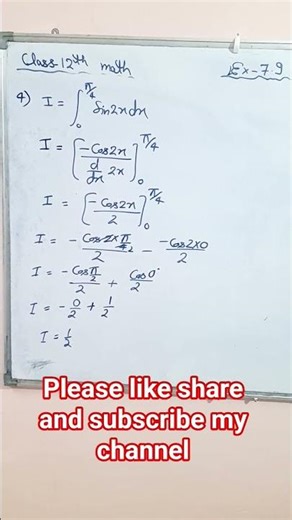 Class 12th math Ex-7.9
4) I = ∫₀^π/4 Sin2x dx
I = [-Cos2x / d/dx 2x]₀^π/4
I = [-Cos2x / 2]₀^π/4
I = -Cos2×π/4₂ / 2 - -Cos2×0 / 2
I = -Cosπ/2 / 2 + Cos0° / 2
I = -0/2 + 1/2
I = 1/2
Please like share
and subscribe my
channel